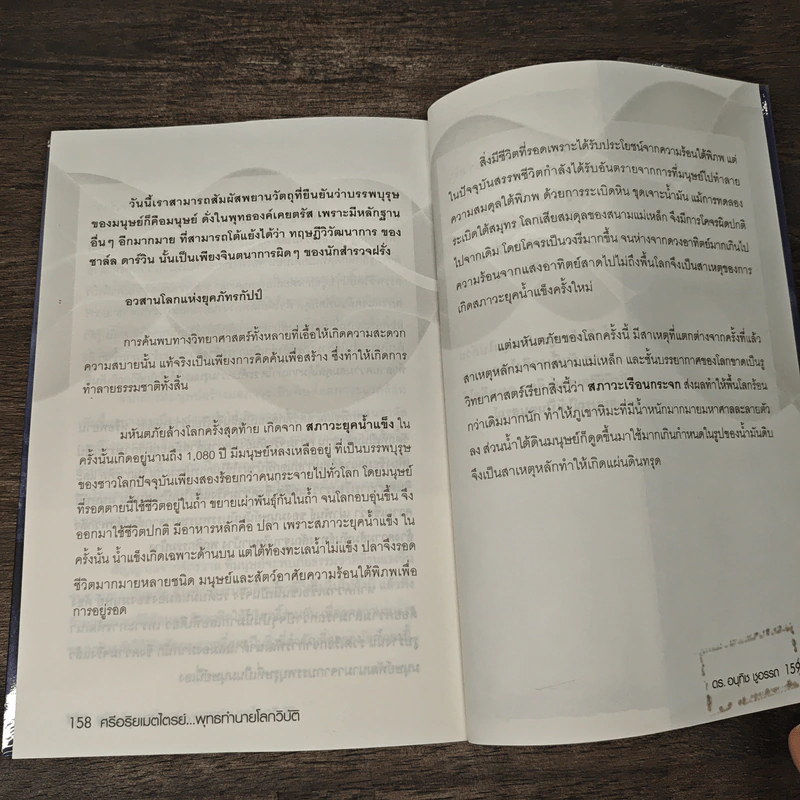 วันนี้เราสามารถสัมผัสพยานวัตถุที่ยืนยันว่าบรรพบุรุษ
ของมนุษย์ก็คือมนุษย์ ดั่งในพุทธองค์เคยตรัส เพราะมีหลักฐาน
อื่นๆ อีกมากมาย ที่สามารถโต้แย้งได้ว่า ทฤษฏีวิวัฒนาการ ของ
ชาล์ล ดาร์วิน นั้นเป็นเพียงจินตนาการผิดๆ ของนักสำรวจฝรั่ง
อวสานโลกแห่งยุคภัทรกัปป์
การค้นพบทางวิทยาศาสตร์ทั้งหลายที่เอื้อให้เกิดความสะดวก
ความสบายนั้น แท้จริงเป็นเพียงการคิดค้นเพื่อสร้าง ซึ่งทำให้เกิดการ
ทำลายธรรมชาติทั้งสิ้น
มหันตภัยล้างโลกครั้งสุดท้าย เกิดจาก สภาวะยุคน้ำแข็ง ใน
ครั้งนั้นเกิดอยู่นานถึง 1,080 ปี มีมนุษย์หลงเหลืออยู่ ที่เป็นบรรพบุรุษ
ของชาวโลกปัจจุบันเพียงสองร้อยกว่าคนกระจายไปทั่วโลก โดยมนุษย์
ที่รอดตายนี้ใช้ชีวิตอยู่ในถ้ำ ขยายเผ่าพันธุ์กันในถ้ำ จนโลกอบอุ่นขึ้น จึง
ออกมาใช้ชีวิตปกติ มีอาหารหลักคือ ปลา เพราะสภาวะยุคน้ำแข็ง ใน
ครั้งนั้น น้ำแข็งเกิดเฉพาะด้านบน แต่ใต้ท้องทะเลน้ำไม่แข็ง ปลาจึงรอด
ชีวิตมากมายหลายชนิด มนุษย์และสัตว์อาศัยความร้อนใต้พิภพเพื่อ
การอยู่รอด
158 ศรีอริยเมตไตรย์...พุทธทำนายโลกวิบัติ
สิ่งมีชีวิตที่รอดเพราะได้รับประโยชน์จากความร้อนใต้พิภพ แต่
ในปัจจุบันสรรพชีวิตกำลังได้รับอันตรายจากการที่มนุษย์ไปทำลาย
ความสมดุลใต้พิภพ ด้วยการระเบิดหิน ขุดเจาะน้ำมัน แม้การทดลอง
ระเบิดใต้สมุทร โลกเสียสมดุลของสนามแม่เหล็ก จึงมีการโคจรผิดปกติ
ไปจากเดิม โดยโคจรเป็นวงรีมากขึ้น จนห่างจากดวงอาทิตย์มากเกินไป
ความร้อนจากแสงอาทิตย์สาดไปไม่ถึงพื้นโลกจึงเป็นสาเหตุของการ
เกิดสภาวะยุคน้ำแข็งครั้งใหม่
แต่มหันตภัยของโลกครั้งนี้ มีสาเหตุที่แตกต่างจากครั้งที่แล้ว
สาเหตุหลักมาจากสนามแม่เหล็ก และชั้นบรรยากาศของโลกขาดเป็นรู
วิทยาศาสตร์เรียกสิ่งนี้ว่า สภาวะเรือนกระจก ส่งผลทำให้พื้นโลกร้อน
กว่าเดิมมากนัก ทำให้ภูเขาหิมะที่มีน้ำหนักมากมายมหาศาลละลายตัว
ลง ส่วนน้ำใต้ดินมนุษย์ก็ดูดขึ้นมาใช้มากเกินกำหนดในรูปของน้ำมันดิบ
จึงเป็นสาเหตุหลักทำให้เกิดแผ่นดินทรุด
ดร. อนุทิช ชูอรรถ 159